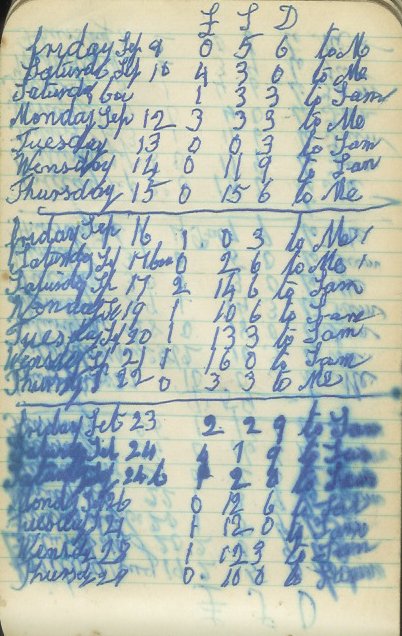 £ S D
friday Sep 9 0 5 6 to Me
Saturda Sep 10 4 3 0 to Me
Saturday 1 3 3 to Sam
Monday Sep 12 3 3 3 to Me
Tuesday 13 0 0 3 to Sam
Wensday 14 0 11 9 to San
Thursday 15 0 15 6 to Me
friday Sep 16 1 0 3 to Me
Saturda Sep 17 0 2 6 to Me
Saturda Se 17 2 14 6 to Sam
Monda Se 19 1 10 6 to Sam
Tuesda Se 20 1 13 3 to Sam
Wensda Se 21 1 16 0 to Sam
Thurs 22 0 3 3 to Me
friday Set 23 2 2 9 to Sam
Saturda Set 24 4 1 9 to Sam
24 1 2 to Sam
Monda Se 26 0 12 6 to Sam
Tuesday 1 12 0 to Sam
Wensday 1 3 to Sam
Thursd 0 10 0 to Sam